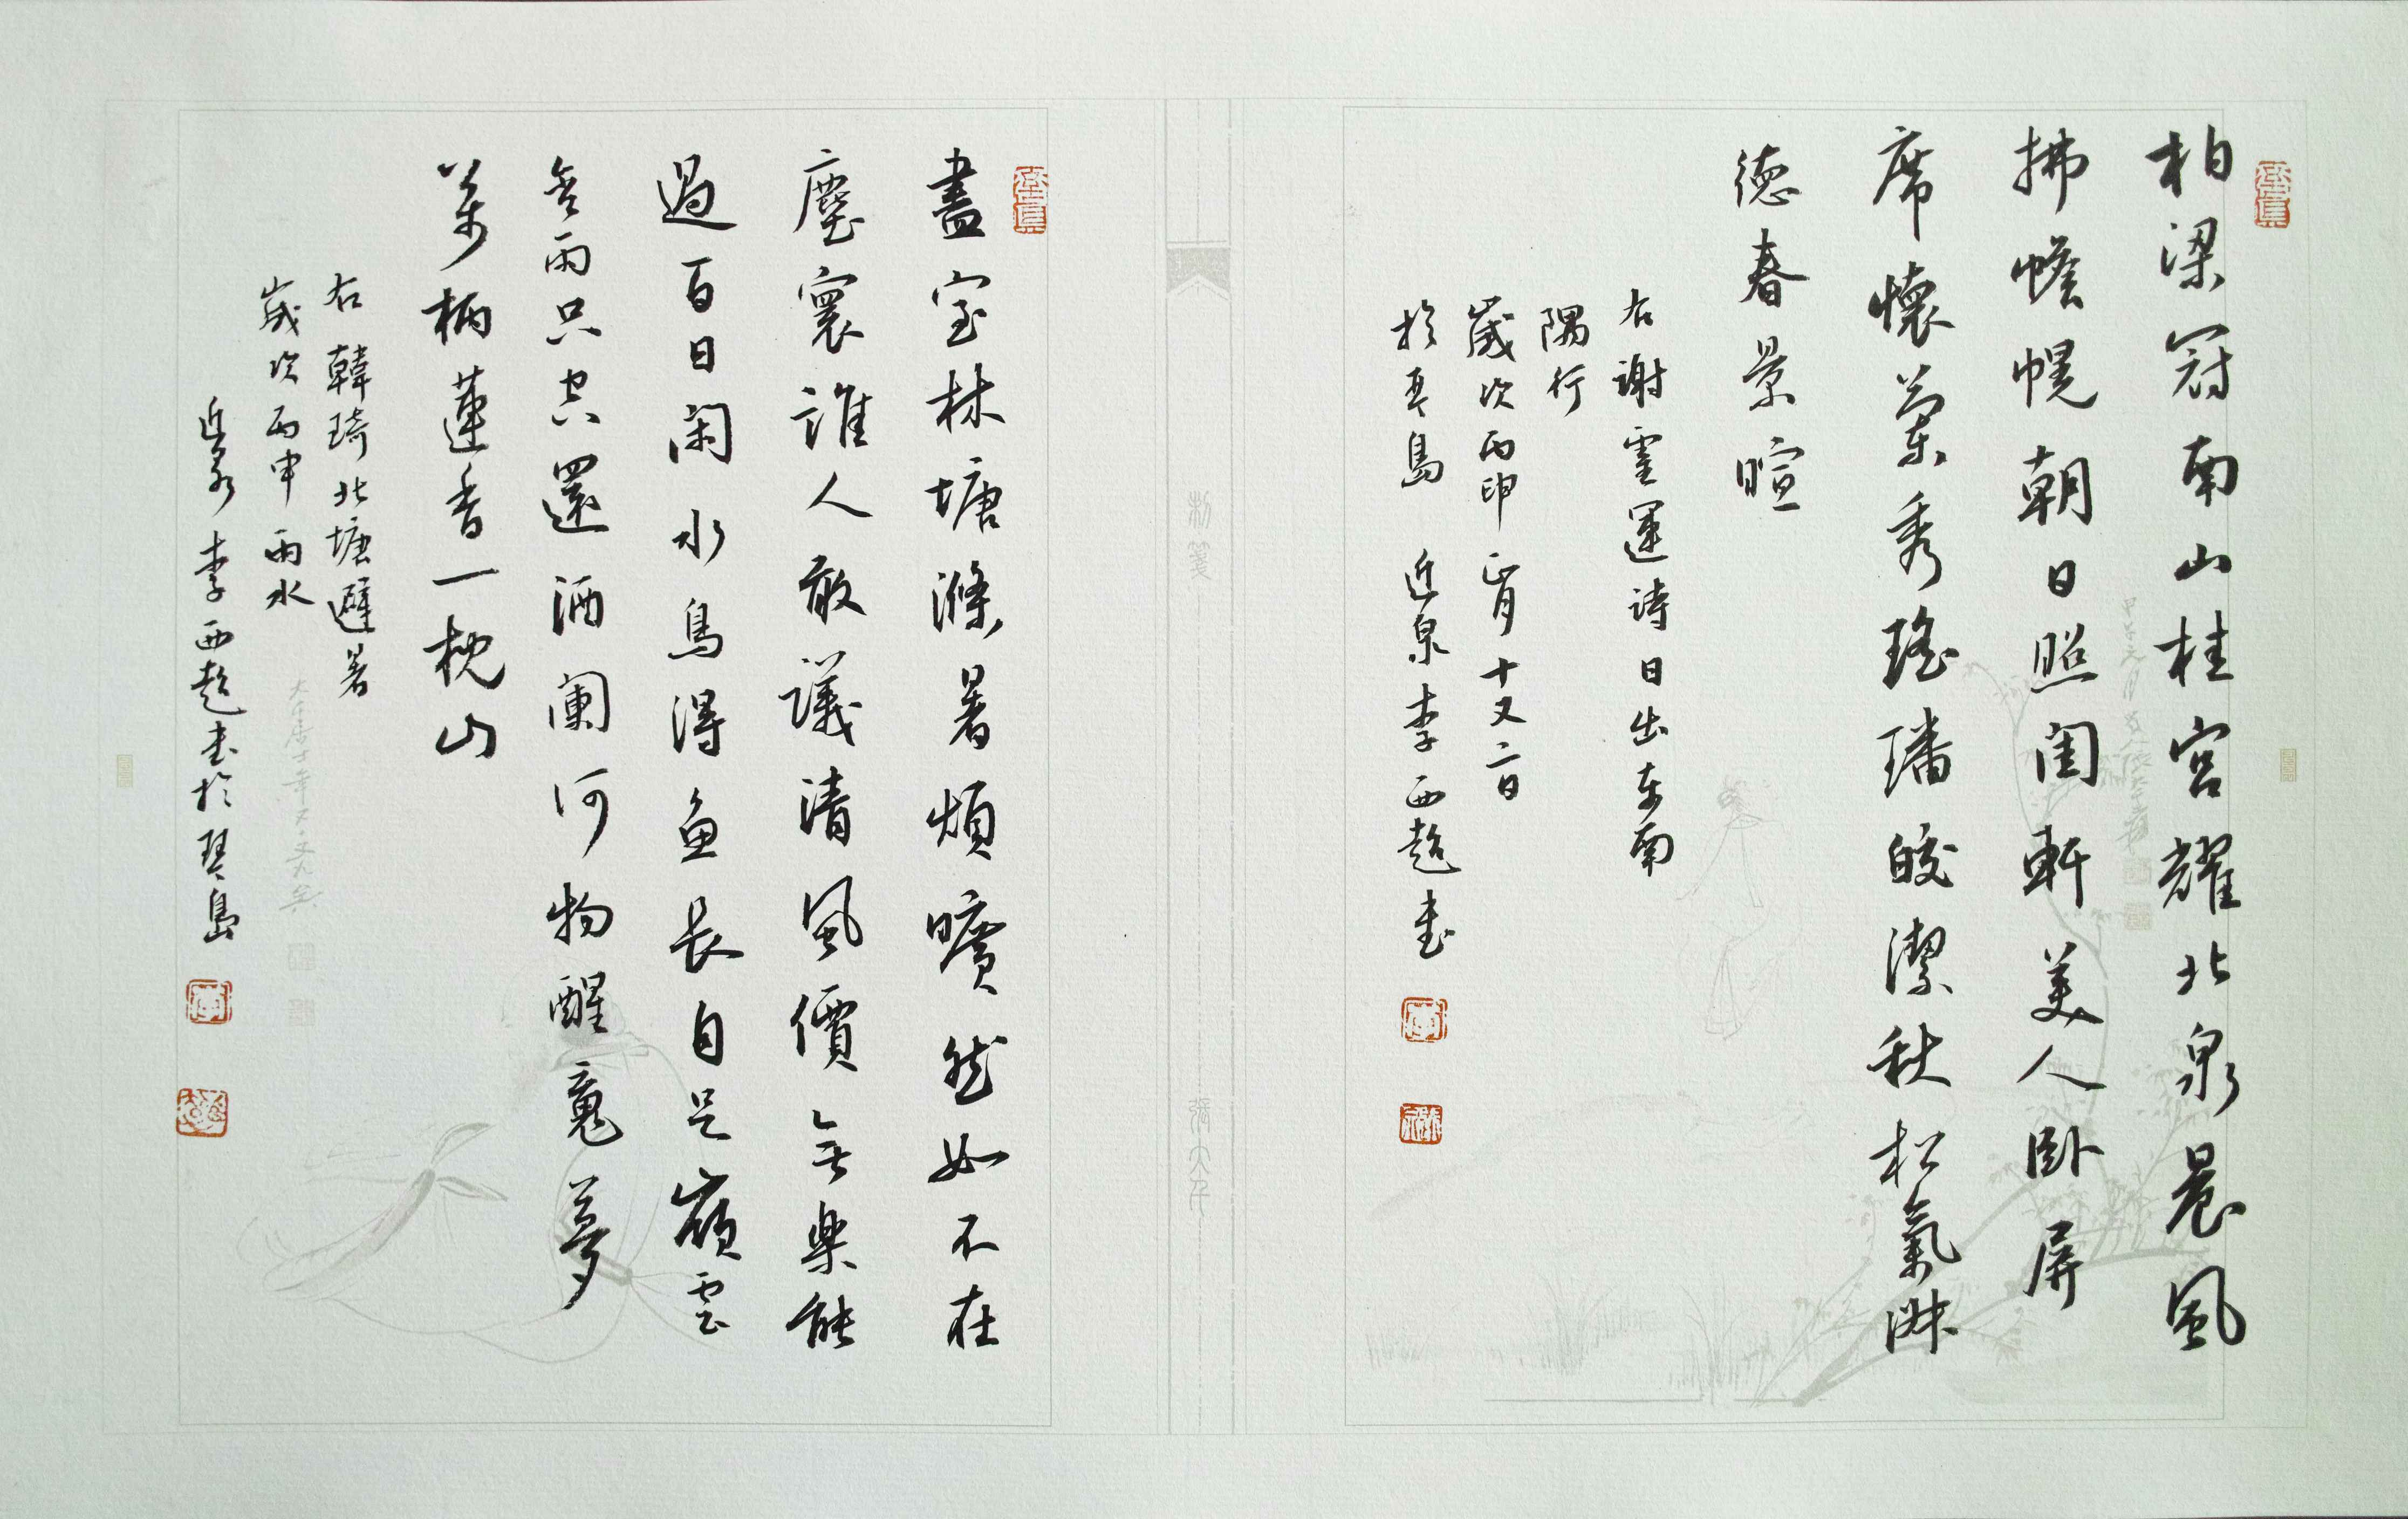 柏梁冠南山桂宮耀北泉晨風
拂幨幌朝日照閨軒美人臥屏
席懷蘭秀瑤璠皎潔秋松氣淋
德春景暄
右謝靈運詩日出东南
隅行
歲次丙申正月十又二日
於琴島 近泉李西超书
盡室林塘滌暑煩曠然如不在
塵寰誰人敢議清風價無樂能
過百日閑水鳥得魚長自足嶺雲
含雨只空還酒闌何物醒魂夢
萬柄蓮香一枕山
右韓琦北塘避暑
歲次丙申雨水
近泉李西超书於琴島